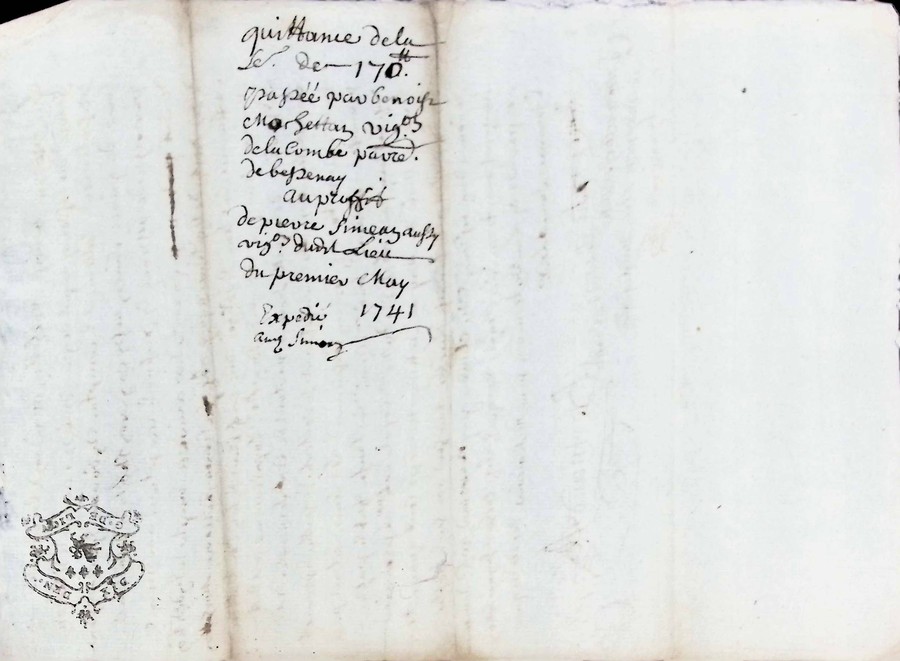 quittance dela
Se. de 170.tt
passéé par benoist
Mochettan vig.on
dela Combe parr.
de bessenay
au proffit
de pierre Simean aussy
vig.on dudit Lieu
du premier May
1741
Expedié
aud. Simean